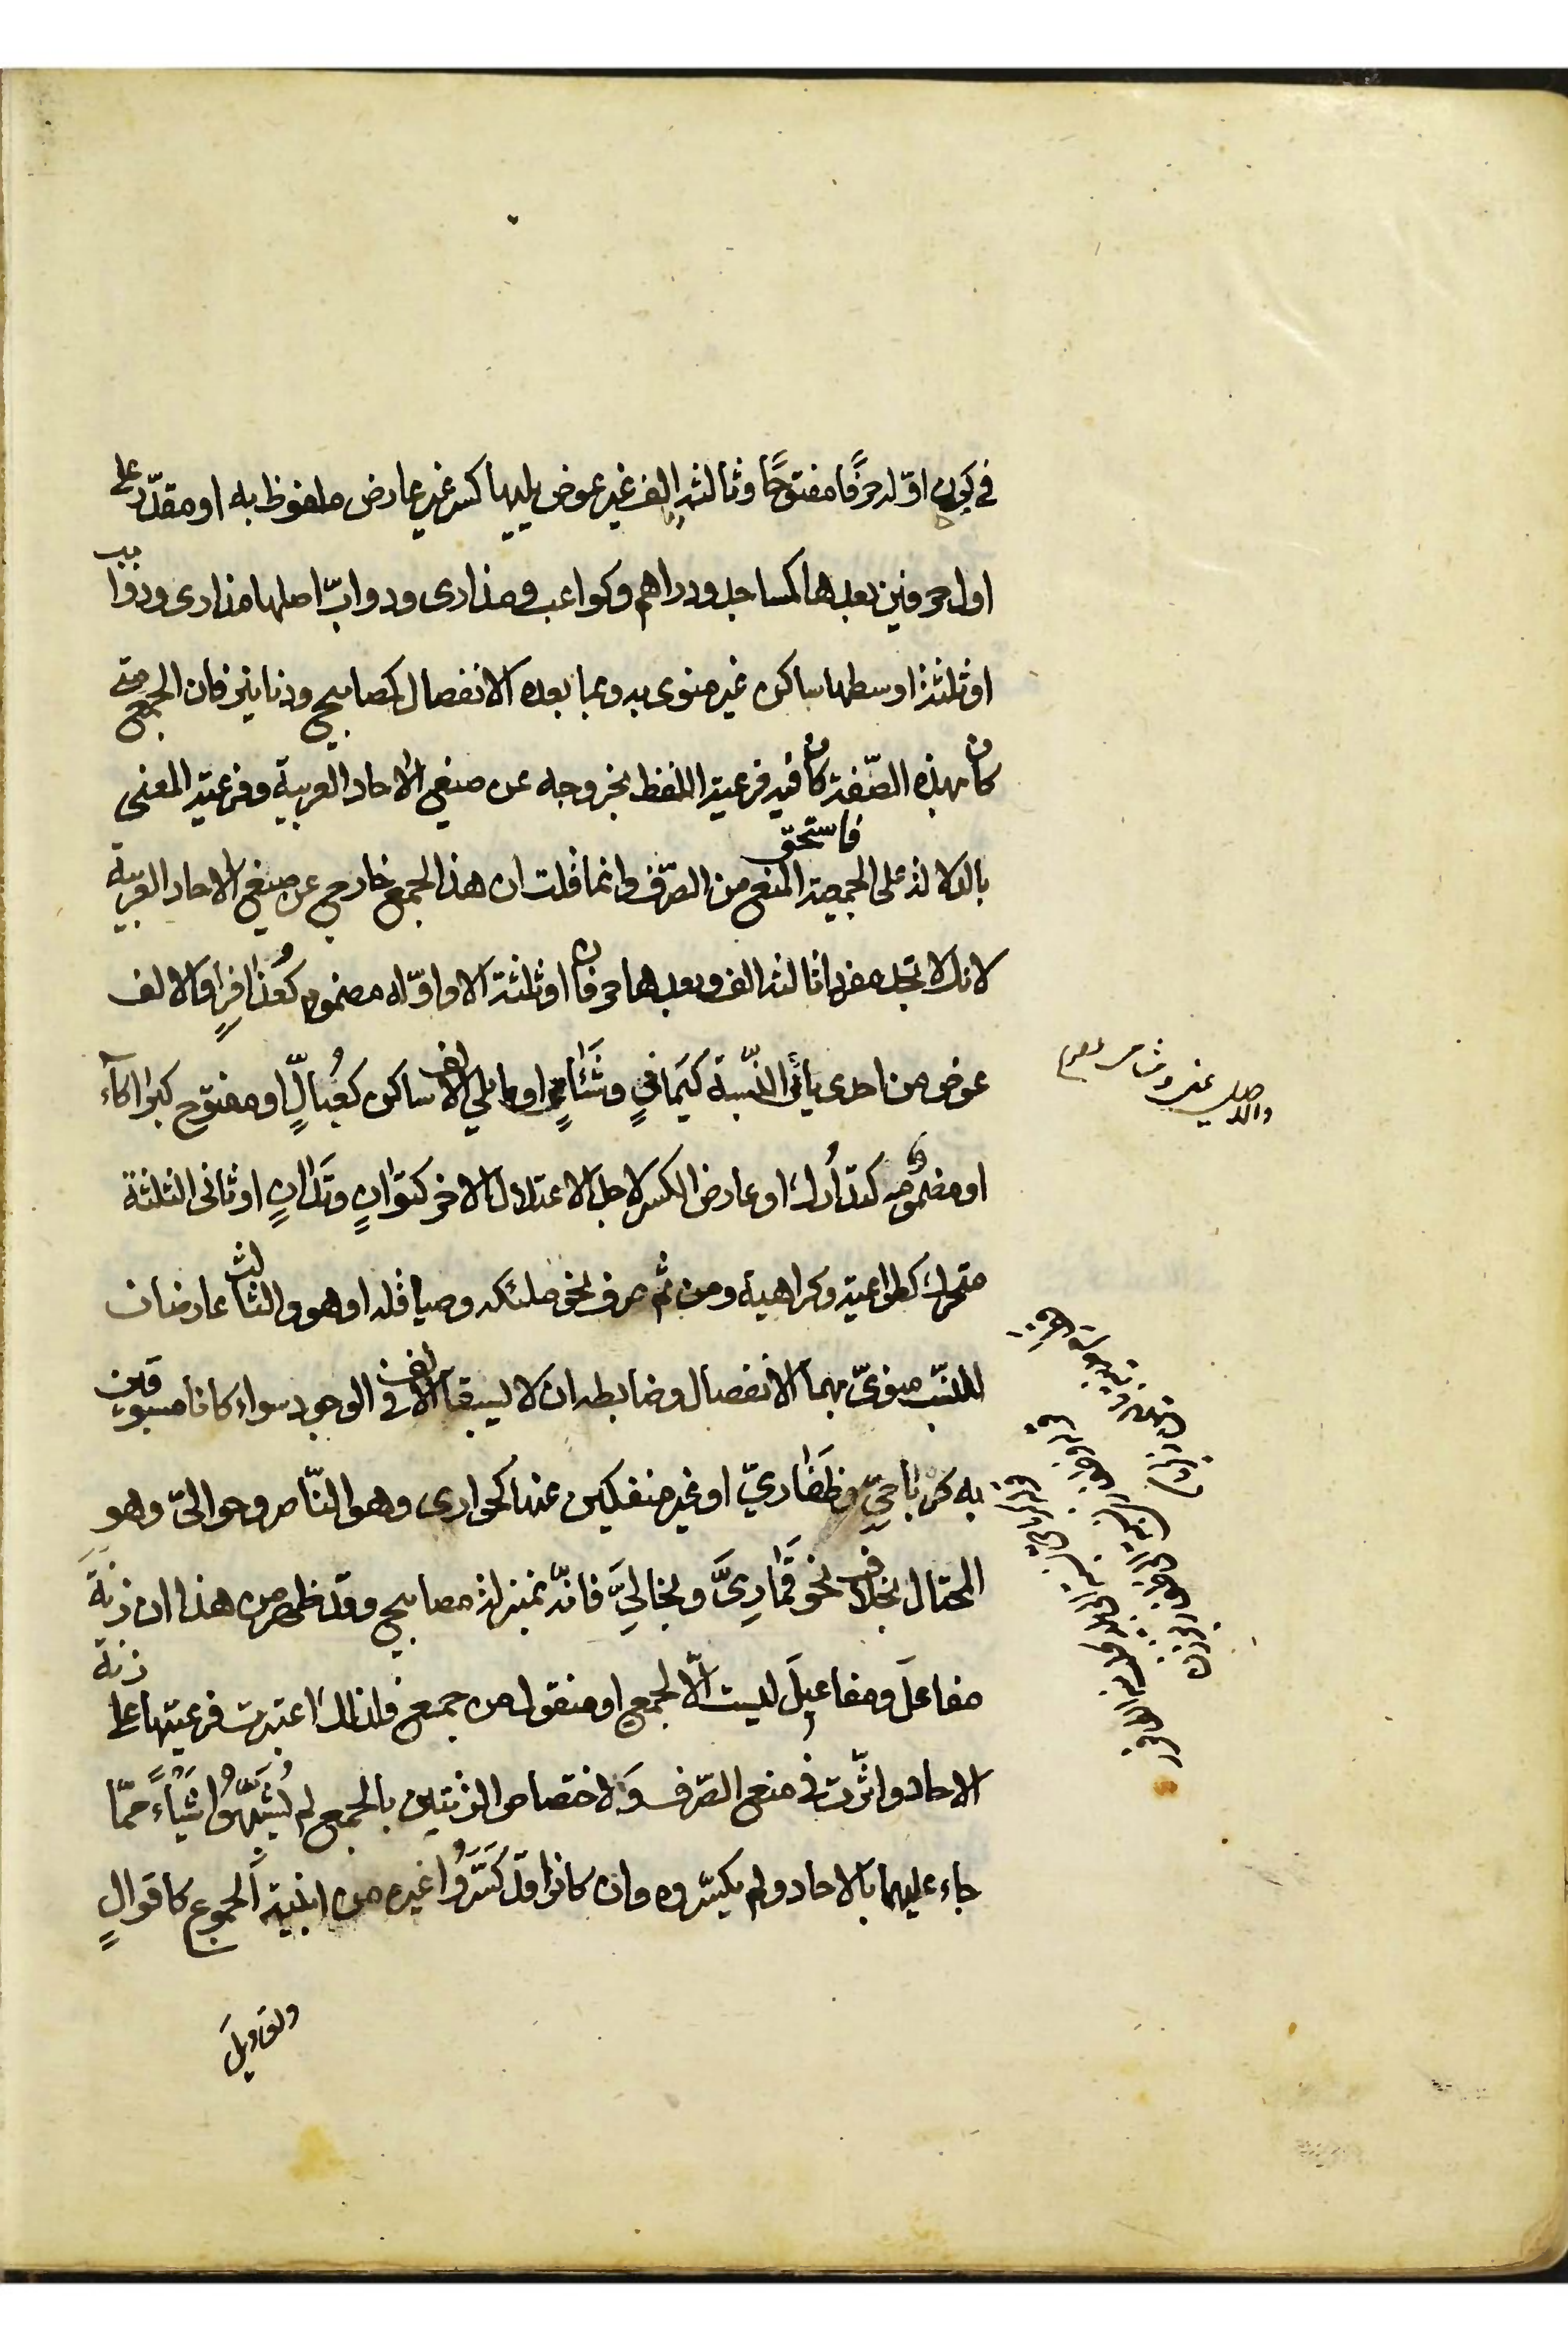 في كون اوّله حرفًا مفتوحًا وثالثه الف غير عوض يليها كسر غير عارض ملفوظ به او مقدّر على
اول حرفين بعدها كمساجد ودراهم وكواعب ومذارى ودوابّ اصلها مذارى ودوابب
او ثلثة اوسطها ساكن غير منوى به وبما بعده الانفصال كمصابيح ودنانير فان الجمع متى
كان بهذه الصّفة كان فيه فرعية اللفظ بخروجه عن صيغ الاحاد العربية وفرعية المعنى
بالدلالة على الجمعية فاستحق المنع من الصّرف وانما قلت ان هذا الجمع خارج عن صيغ الاحاد العربية
لانك لا تجد مفردا ثالثه الف وبعدها حرفان او ثلثة الا واوّله مضموم كعُذافرٍ او الالف
عوض من احدى يائي النّسبة كيَمانٍ وشَئامٍ او ما يلي الالف ساكن كعُبالٍّ او مفتوح كبراكاء
او مضمومه كتدارُك او عارض الكسر لاجل الاعتلال الاخر كتوانٍ وتدانٍ او ثاني الثلثة
متحرك كطواعية وكراهية ومن ثم صرف نحو ملئكة وصياقلة او هو والثالث عارضان
للنسب منوىّ بهما الانفصال وضابطه ان لا يسبقا الالف في الوجود سواء كانا مسبوقين
به كرباحيّ وظَفاريّ او غير منفكين عنها كحوارى وهو النّاصر وحوالىّ وهو
المحتال بخلاف نحو قَمارِىَّ وبخاتيَّ فانّه بمنزلة مصابيح وقد ظهر من هذا ان زنة
مفاعلَ ومفاعيلَ ليست الّا لجمع او منقول من جمع فلذلك اعتبرت فرعيتها على زنة
الاحاد واثّرت في منع الصّرف ولاختصاص الزنتين بالجمع لم يُشبّهوا شيئاً ممّا
جاء عليهما بالاحاد ولم يكسّروه وان كانوا قد كَسَّروا غيره من ابنية الجموع كاقوالٍ
واقاويلَ